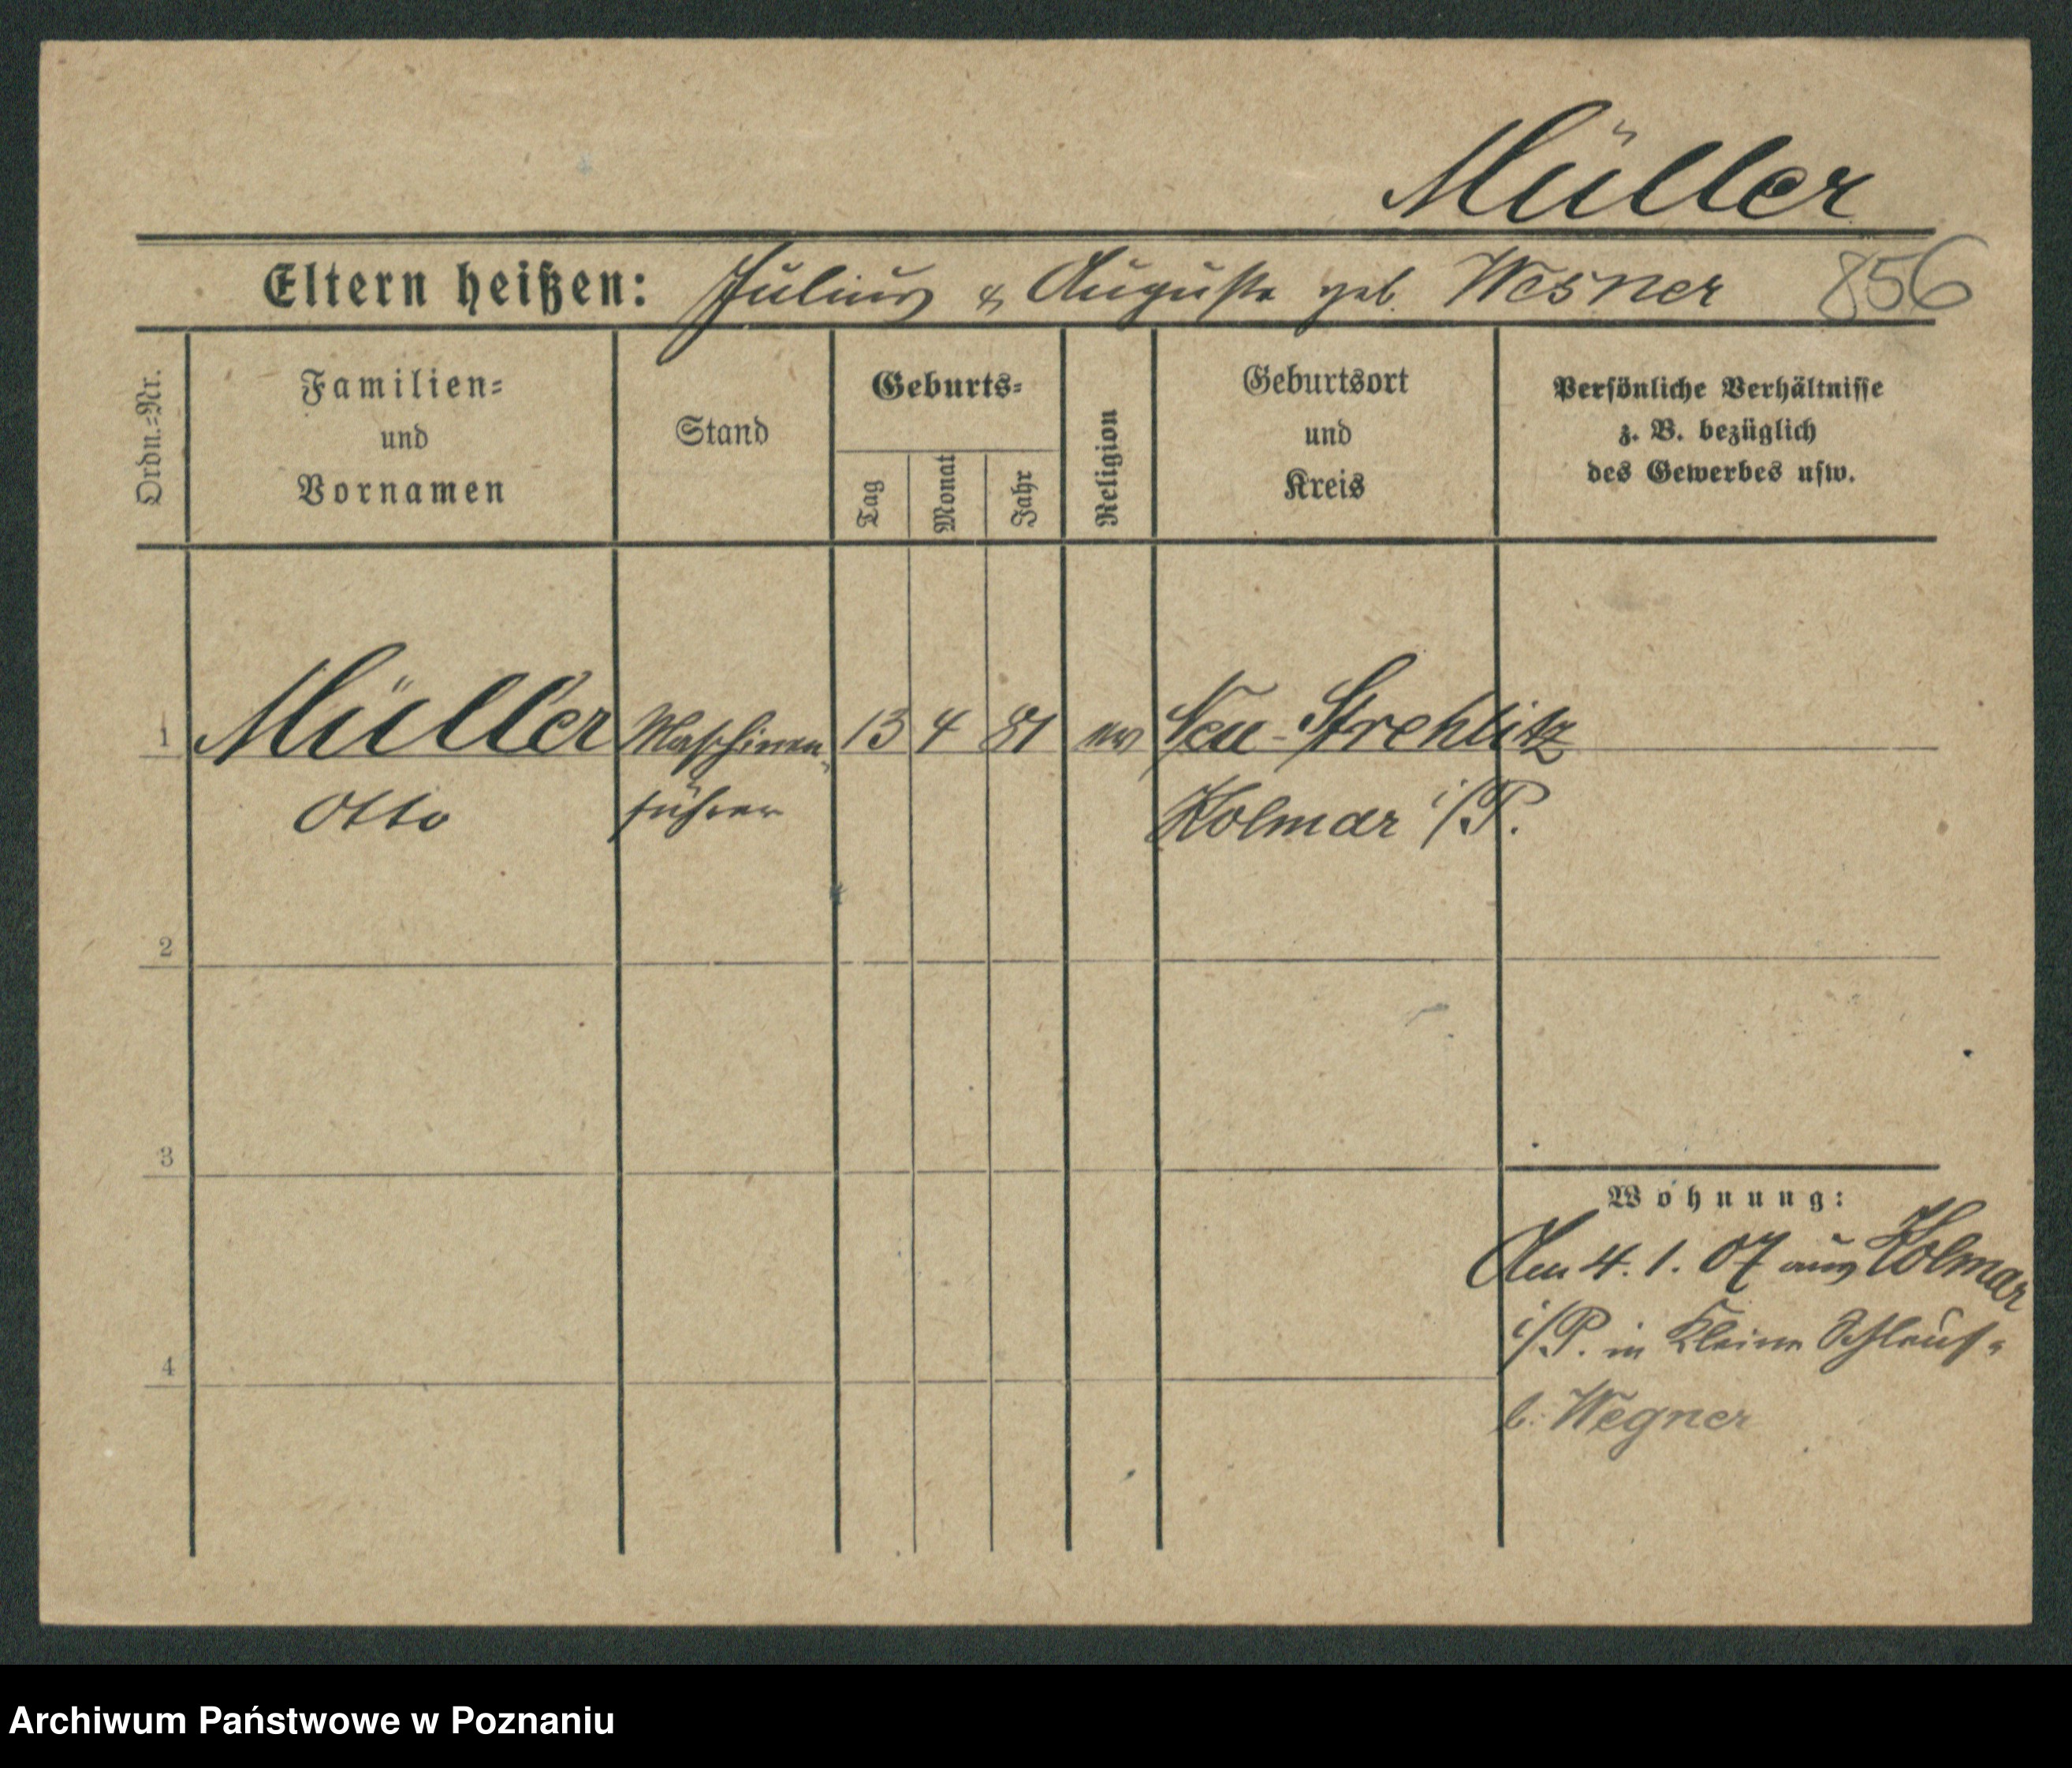 Müller
Eltern heißen: Julius & Auguste geb. Wesner 856
Ordn.-Nr.
Familien-
und
Vornamen
Stand
Geburts-
Tag
Monat
Jahr
Religion
Geburtsort
und
Kreis
Persönliche Verhältnisse
z. B. bezüglich
des Gewerbes usw.
1 Müller Maschinen- 13 4 81 ev Neu-Strehlitz
Otto führer Kolmar i/P.
2
3
Wohnung:
Am 4. 1. 07 aus Kolmar
i/P. in Kleine
4
b. Wegner
Archiwum Państwowe w Poznaniu